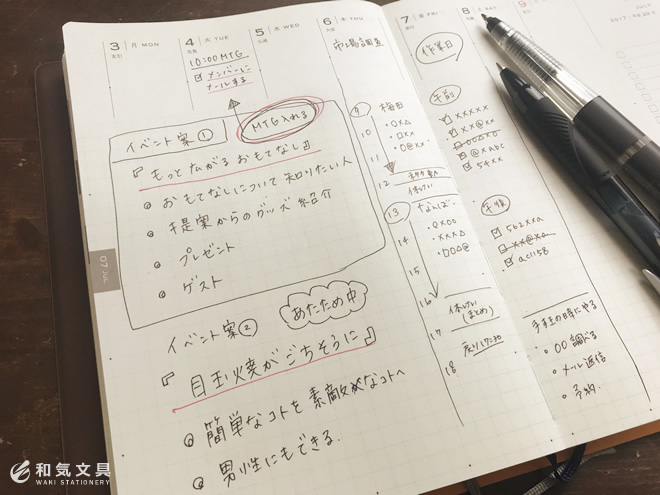 3 月 MON
4 火 TUE
5 水 WED
6 木 THU
7 金 FRI
8 土
9 日
10:00MTG
メンバーに
メールする
市場調査
イベント案①
MTG入れる
『もっと広がる おもてなし』
おもてなしについて 知りたい人
提案からのグッズ紹介
プレゼント
ゲスト
07 JUL
イベント案②
あたため中
『目玉焼がごちそうに』
簡単なコトを素敵なコトへ
男性にもできる.
9
10
11
12
13
14
15
16
17
18
休けい
休けい
(まとめ)
戻り17:30
作業日
午前
xxxxx
@xabc
54xx
午後
562xxa
xx@xa
ac1158
手すきの時にやる
○○調べる
メール返信
予約
和気文具
WAKI STATIONERY